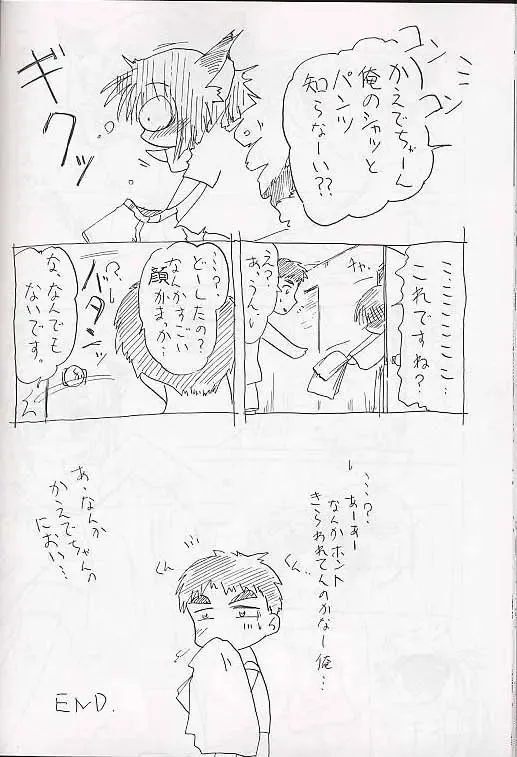 コンコン
かえでちゃーん
俺のシャツと
パンツ
知らなーい??
ギクッ
ミ…
これですね?…
チャ
え?
あ、うん
…?
どーしたの?
なんかすごい
顔がまっか…
バタンッ
な、なんでも
ないです。
…?
あーあー
なんかホント
きらわれてんのかなー俺…
くん…
くん
あ、なんか
かえでちゃんの
におい…
END.